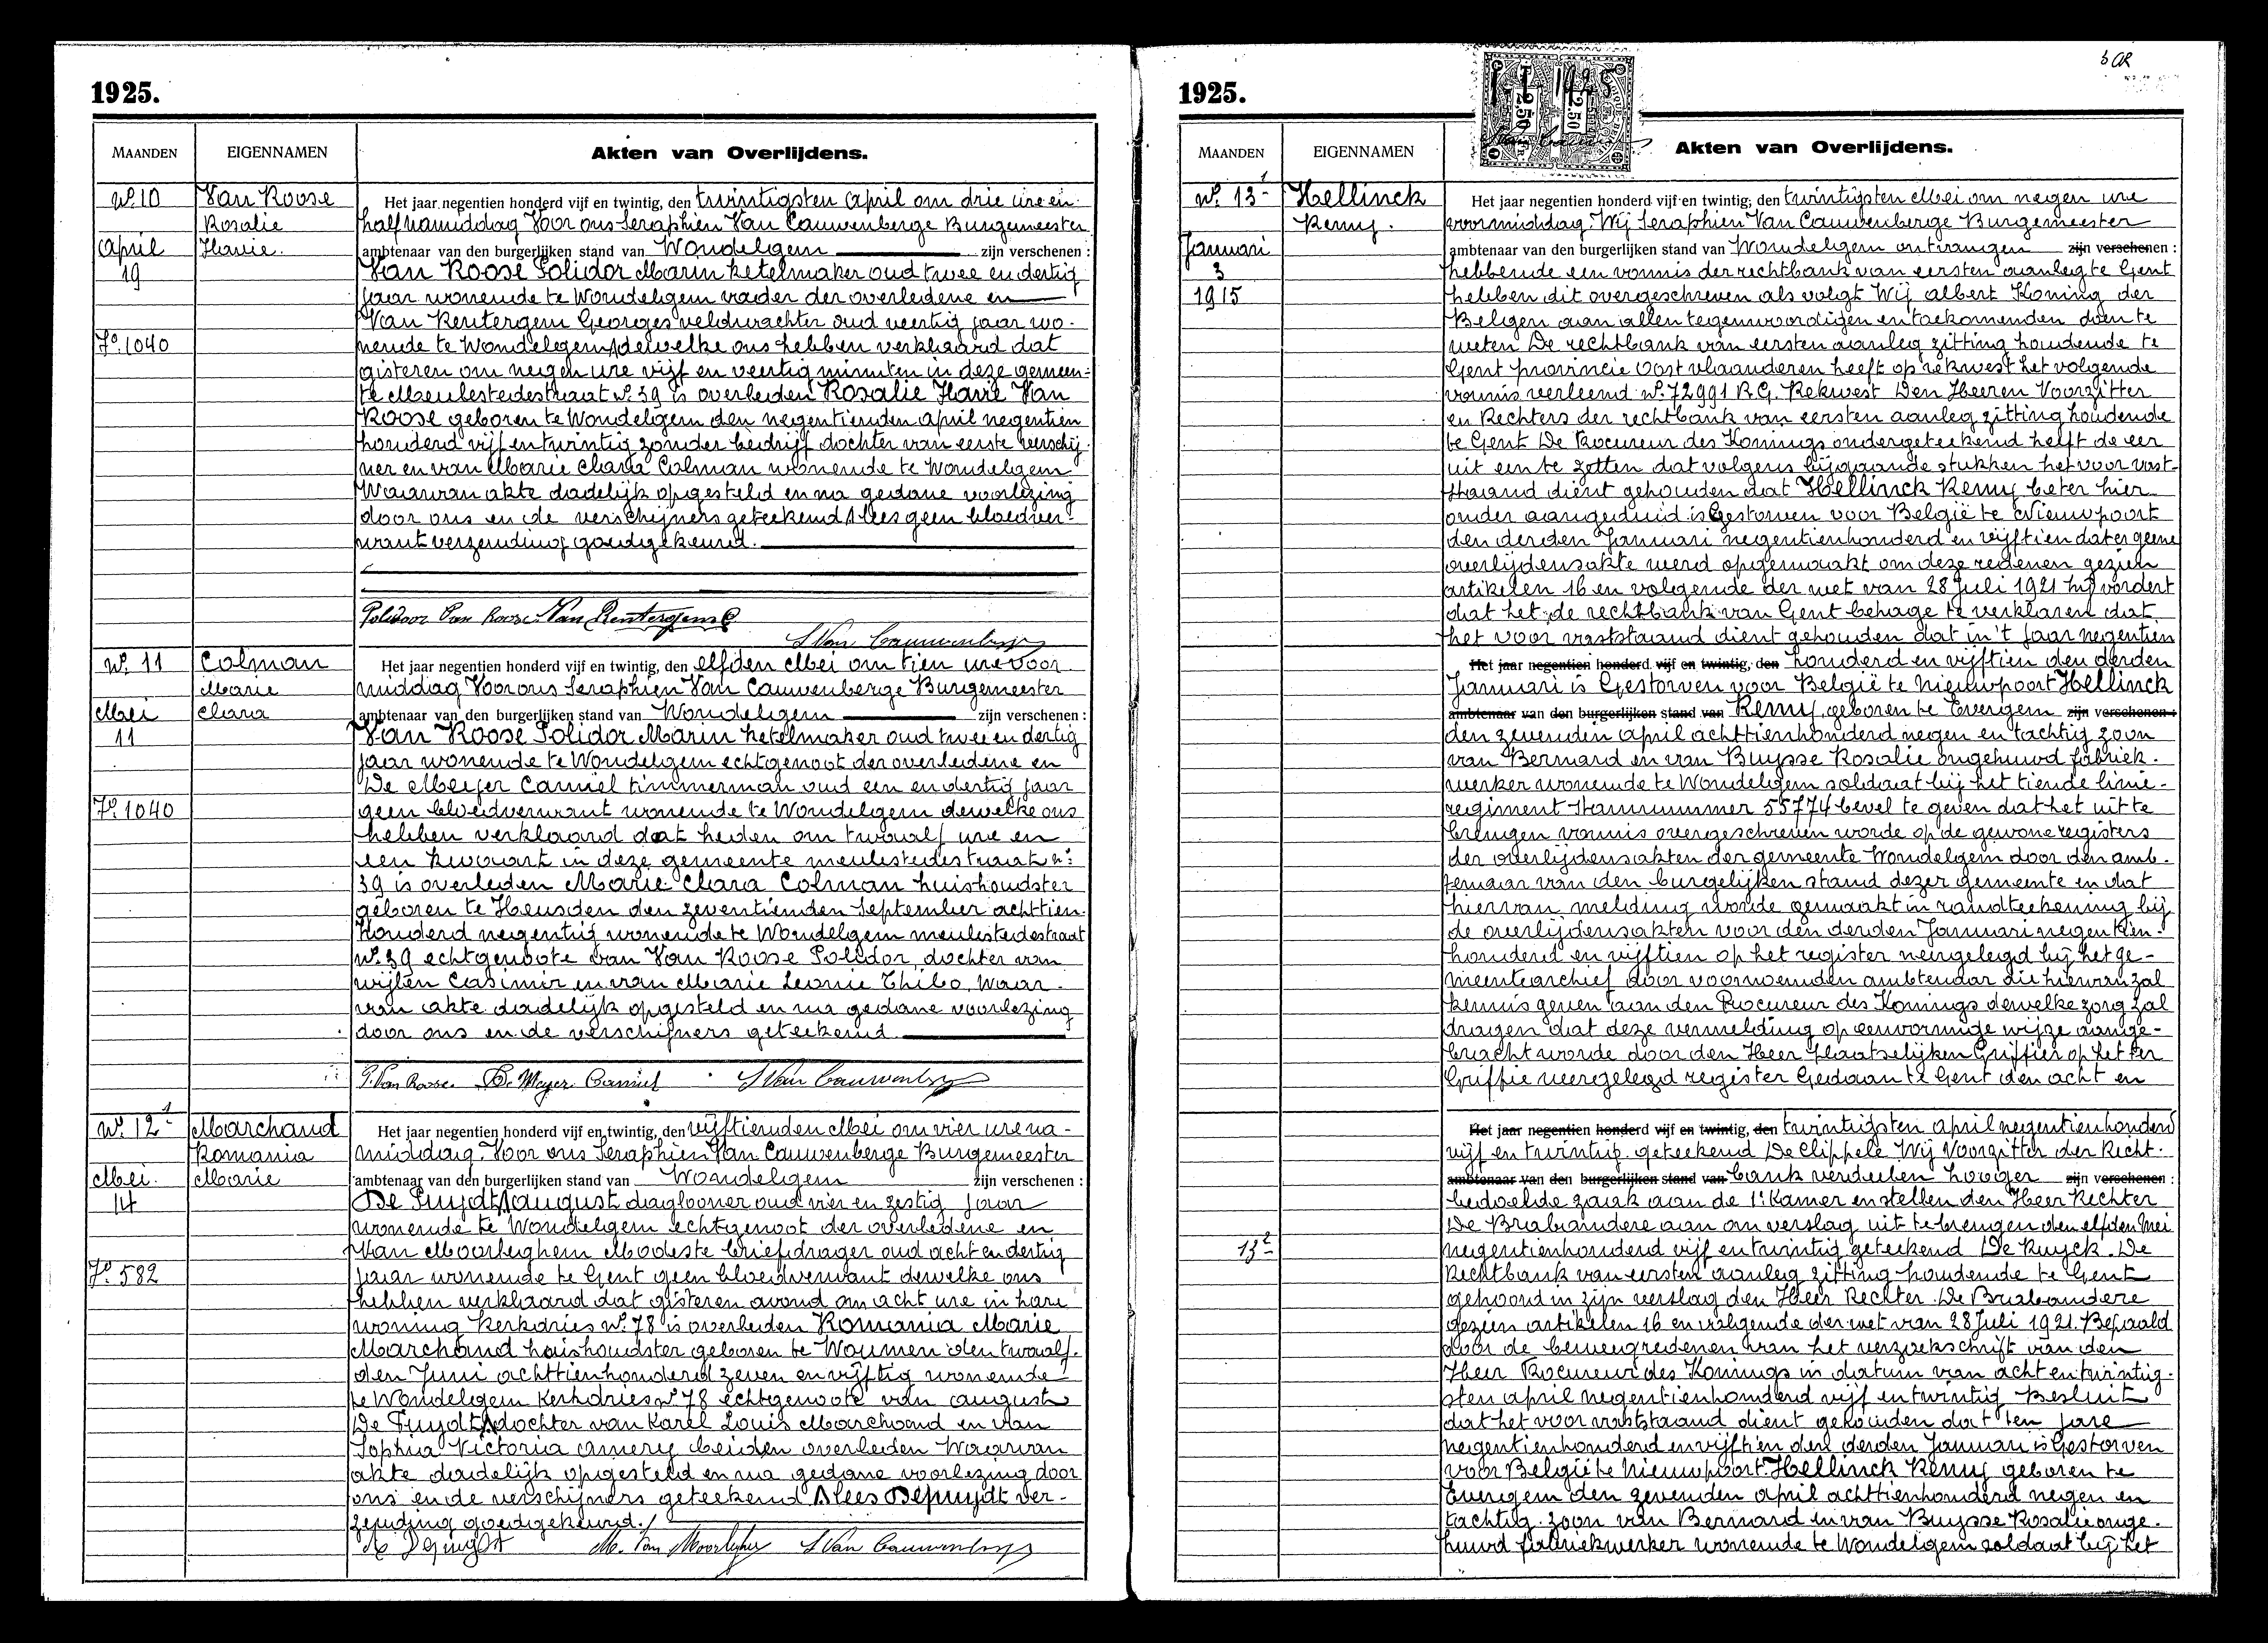 1925.
MAANDEN EIGENNAMEN Akten van Overlijdens.
No. 10 Van Roose Rosalie Havie.
April 19
Fo. 1040
Het jaar negentien honderd vijf en twintig, den twintigsten April om drie ure en
half namiddag Voor ons Seraphien Van Cauwenberge Burgemeester
ambtenaar van den burgerlijken stand van Wondelgem zijn verschenen :
Van Roose Polidor Marin ketelmaker oud twee en dertig
jaar wonende te Wondelgem vader der overledene en
Van Rentergem Georges veldwachter oud veertig jaar wo-
nende te Wondelgem dewelke ons hebben verklaard dat
gisteren om negen ure vijf en veertig minuten in deze gemeen-
te Meulestedestraat No. 39 is overleden Rosalie Havie Van
Roose geboren te Wondelgem den negentienden april negentien
honderd vijf en twintig zonder bedrijf dochter van eerste verschij-
ner en van Marie Clara Colman wonende te Wondelgem
Waarvan akte dadelijk opgesteld en na gedane voorlezing
door ons en de verschijners geteekend lees geen bloedver-
want verzending goedgekeurd.
Polidoor Van Roose. Van Rentergem G
S Van Cauwenberge
No. 11 Colman Marie Clara
Mei 11
Fo. 1040
Het jaar negentien honderd vijf en twintig, den elfden Mei om tien ure voor
middag Voor ons Seraphien Van Cauwenberge Burgemeester
ambtenaar van den burgerlijken stand van Wondelgem zijn verschenen :
Van Roose Polidor Marin ketelmaker oud twee en dertig
jaar wonende te Wondelgem echtgenoot der overledene en
De Meyer Camiel timmerman oud een en dertig jaar
geen bloedverwant wonende te Wondelgem dewelke ons
hebben verklaard dat heden om twaalf ure en
een kwaart in deze gemeente meulestedestraat n:
39 is overleden Marie Clara Colman huishoudster
geboren te Heusden den zeventienden September achttien-
honderd negentig wonende te Wondelgem meulestedestraat
No. 39 echtgenoote van Van Roose Polidor, dochter van
wijlen Casimir en van Marie Leonie Thibo, waar-
van akte dadelijk opgesteld en na gedane voorlezing
door ons en de verschijners geteekend
P. Van Roose. De Meyer Camiel S Van Cauwenberge
No. 12 1 Marchand Romania Marie
Mei. 14
Fo. 582
Het jaar negentien honderd vijf en twintig, den vijftienden Mei om vier ure na-
middag. Voor ons Seraphien Van Cauwenberge Burgemeester
ambtenaar van den burgerlijken stand van Wondelgem zijn verschenen :
De Puydt august daglooner oud vier en zestig jaar
wonende te Wondelgem echtgenoot der overledene en
Van Moorleghem Modeste briefdrager oud acht en dertig
jaar wonende te Gent geen bloedverwant dewelke ons
hebben verklaard dat gisteren avond om acht ure in hare
woning Kerkdries No. 78 is overleden Romania Marie
Marchand huishoudster geboren te Woumen den twaalf-
den Juni achttienhonderd zeven en vijftig wonende
te Wondelgem Kerkdries No 78 echtgenoote van august
De Puydt dochter van Karel Louis Marchand en van
Sophia Victoria Amery beiden overleden Waarvan
akte dadelijk opgesteld en na gedane voorlezing door
ons en de verschijners geteekend lees Depuydt ver-
zending goedgekeurd./
A Depuydt M. Van Moorleghem S Van Cauwenberge
1925.
1 1 1925
2.50 2.50
MAANDEN EIGENNAMEN Akten van Overlijdens.
No. 13 1 Hellinck Remy.
Januari 3 1915
Het jaar negentien honderd vijf en twintig, den twintigsten Mei om negen ure
voormiddag. Wij Seraphien Van Cauwenberge Burgemeester
ambtenaar van den burgerlijken stand van Wondelgem ontvangen zijn verschenen :
hebbende een vonnis der rechtbank van eersten aanleg te Gent
hebben dit overgeschreven als volgt Wij Albert Koning der
Belgen aan allen tegenwoordigen en toekomenden doen te
weten De rechtbank van eersten aanleg zitting houdende te
Gent provincie Oost vlaanderen heeft op rekwest het volgende
vonnis verleend No. 72991 R.G. Rekwest Den Heeren Voorzitter
en Rechters der rechtbank van eersten aanleg zitting houdende
te Gent De Procureur des Konings ondergeteekend helft de eer
uit een te zetten dat volgens bijgaande stukken het voor vast-
staand dient gehouden dat Hellinck Remy beter hier
onder aangeduid is Gestorven voor België te Nieuwpoort
den derden Januari negentienhonderd en vijftien dat er geene
overlijdensakte werd opgemaakt om deze redenen gezien
artikelen 16 en volgende der wet van 28 Juli 1921 hij vordert
dat het de rechtbank van Gent behage te verklaren dat
het voor vaststaand dient gehouden dat in't jaar negentien
Het jaar negentien honderd vijf en twintig, den honderd en vijftien den derden
Januari is Gestorven voor België te Nieuwpoort Hellinck
ambtenaar van den burgerlijken stand van Remy, geboren te Evergem zijn verschenen :
den zevenden april achttienhonderd negen en tachtig zoon
van Bernard en van Buysse Rosalie ongehuwd fabriek-
werker wonende te Wondelgem soldaat bij het tiende linie-
regiment stamnummer 55774 bevel te geven dat het uit te
brengen vonnis overgeschreven worde op de gewone registers
der overlijdensakten der gemeente Wondelgem door den amb-
tenaar van den burgelijken stand dezer gemeente en dat
hiervan melding worde gemaakt in randteekening bij
de overlijdensakten voor den derden Januari negentien-
honderd en vijftien op het register neergelegd bij het ge-
meentearchief door voornoemden ambtenaar die hiervan zal
kennis geven aan den Procureur des Konings dewelke zorg zal
dragen dat deze vermelding op eenvormige wijze aange-
bracht worde door den Heer plaatselijken Griffier op het ter
Griffie neergelegd register Gedaan te Gent den acht en
Het jaar negentien honderd vijf en twintig, den twintigsten april negentienhonderd
vijf en twintig. geteekend De Clippele Wij Voorzitter der Recht-
ambtenaar van den burgerlijken stand van bank verdeelen hooger zijn verschenen :
bedoelde zaak aan de 1e Kamer en stellen den Heer Rechter
De Brabandere aan om verslag uit te brengen den elfden Mei
13 2
negentienhonderd vijf en twintig geteekend De Ruyck. De
Rechtbank van eersten aanleg zitting houdende te Gent
gehoord in zijn verslag den Heer Rechter De Brabandere
gezien artikelen 16 en volgende der wet van 28 Juli 1921. Bepaald
door de beweegredenen van het verzoekschrift van den
Heer Procureur des Konings in datum van acht en twintig-
sten april negentienhonderd vijf en twintig Besluit
dat het voor vaststaand dient gehouden dat ten jare
negentienhonderd en vijftien den derden Januari is Gestorven
voor België te Nieuwpoort Hellinck Remy geboren te
Evergem den zevenden april achttienhonderd negen en
tachtig. zoon van Bernard en van Buysse Rosalie onge-
huwd fabriekwerker wonende te Wondelgem soldaat bij het